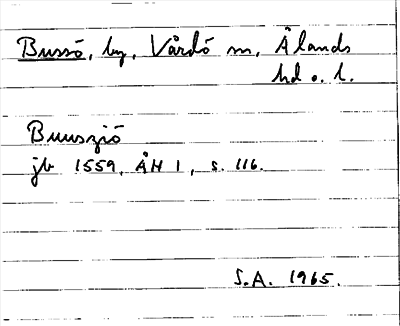 Bussö, by, Vårdö sn, Ålands
hd o. l.
Buuszió
jb 1559, ÅH 1, s. 116.
S.A. 1965.